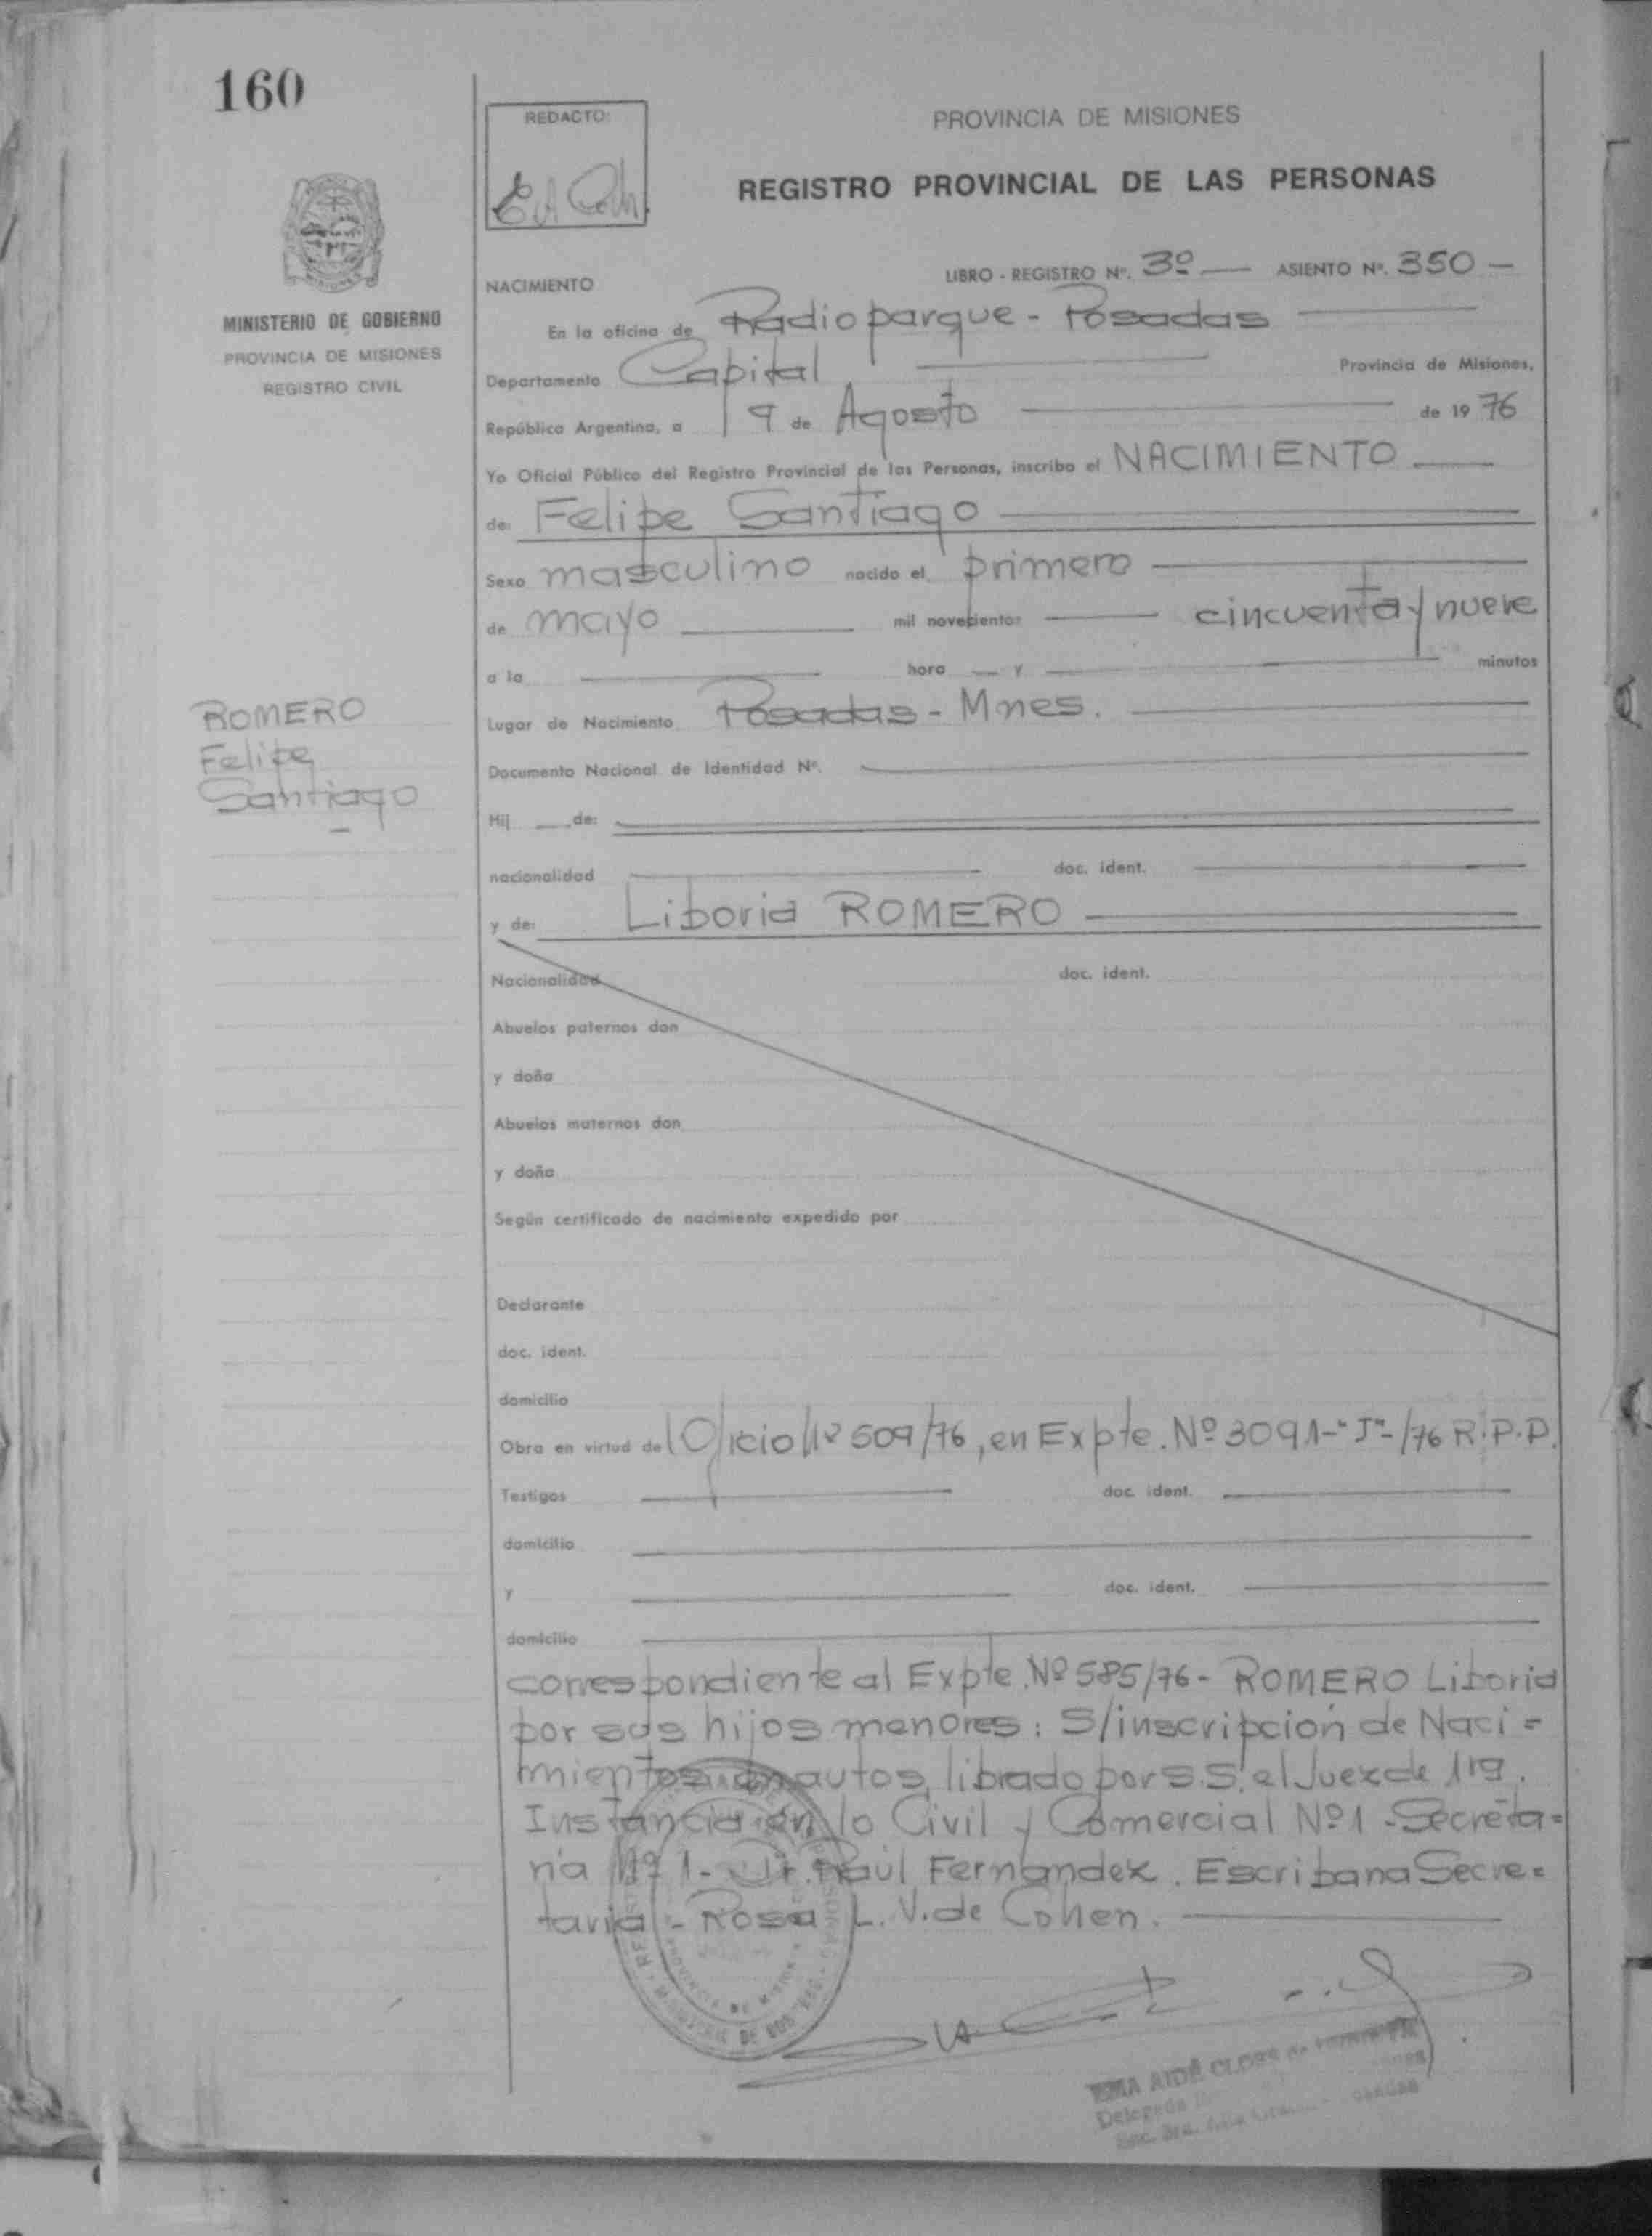 160
REDACTO:
PROVINCIA DE MISIONES
REGISTRO PROVINCIAL DE LAS PERSONAS
MINISTERIO DE GOBIERNO
PROVINCIA DE MISIONES
REGISTRO CIVIL
NACIMIENTO
LIBRO - REGISTRO Nº. 3º — ASIENTO Nº. 350 —
En la oficina de Radioparque - Posadas
Departamento Capital Provincia de Misiones,
República Argentina, a 19 de Agosto de 1976
Yo Oficial Público del Registro Provincial de las Personas, inscribo el NACIMIENTO
de: Felipe Santiago
Sexo masculino nacido el primero
de mayo mil novecientos cincuenta y nueve
a la hora y minutos
Lugar de Nacimiento Posadas - Mnes.
Documento Nacional de Identidad Nº.
Hij de:
nacionalidad doc. ident.
y de: Liboria ROMERO
ROMERO
Felipe
Santiago
Nacionalidad doc. ident.
Abuelos paternos don
y doña
Abuelos maternos don
y doña
Según certificado de nacimiento expedido por
Declarante
doc. ident.
domicilio
Obra en virtud de Oficio Nº 509/76, en Expte. Nº 3091-"J"-/76 R.P.P.
Testigos doc. ident.
domicilio
y doc. ident.
domicilio
correspondiente al Expte. Nº 585/76 - ROMERO Liboria
por sus hijos menores: S/inscripción de Naci=
mientos en autos, librado por S.S. el Juez de 1ra.
Instancia en lo Civil y Comercial Nº 1 - Secreta=
ría Nº 1 - Dr. Raúl Fernandez. Escribana Secre=
taria - Rosa L. V. de Cohen.
AIDÉ CLOSS
Delegada